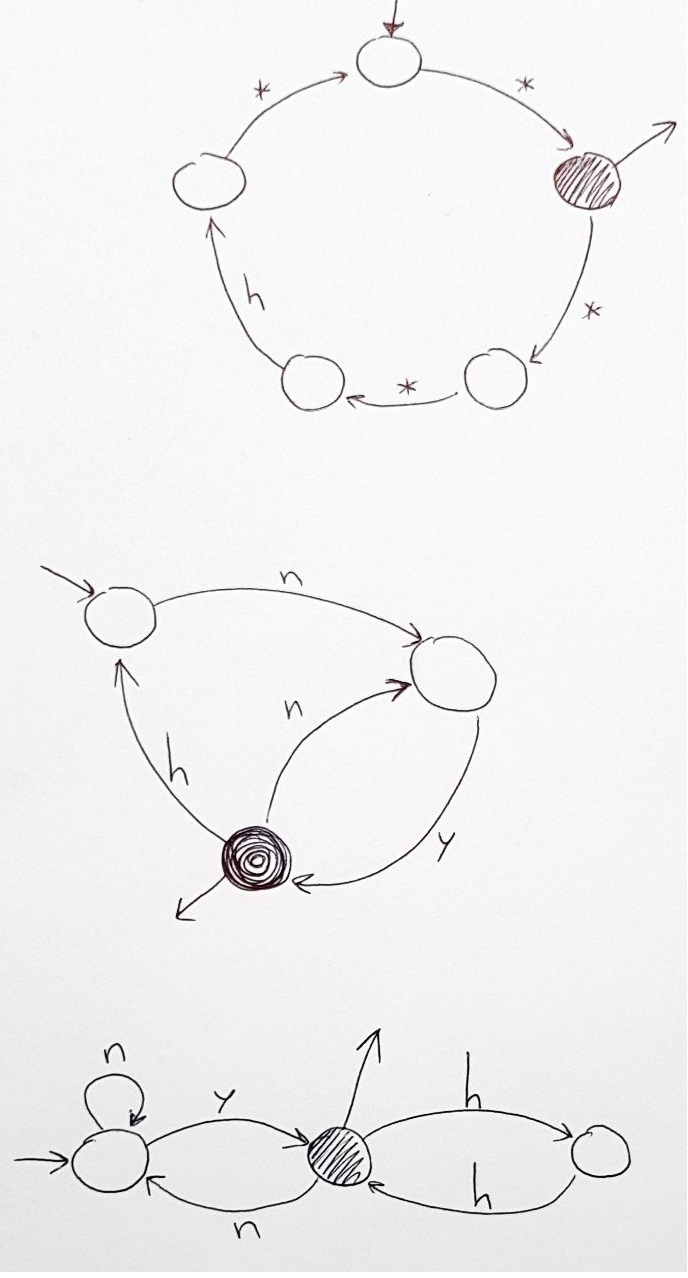 * *
*
h
*
n
n
h
y
n
y
h
h
n